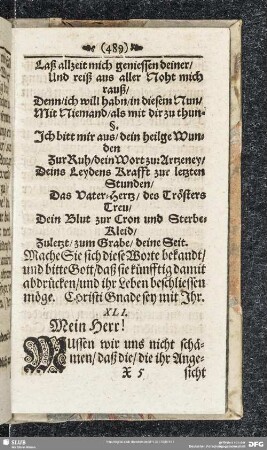 (489)
Laß allzeit mich geniessen deiner/
Und reiß aus aller Noht mich
rauß/
Denn/ich will habn/in diesem Nun/
Mit Niemand/als mit dir zu thun.
§.
Ich bitt mir aus/dein heilge Wun-
den
Zur Ruh/dein Wort zur Artzeney/
Deins Leydens Krafft zur letzten
Stunden/
Das Vater-Hertz/des Trösters
Treu/
Dein Blut zur Cron und Sterbe-
Kleid/
Zuletzt/zum Grabe/deine Seit.
Mache Sie sich diese Worte bekandt/
und bitte Gott/daß sie künfftig damit
abdrücken/und ihr Leben beschliessen
möge. Christi Gnade sey mit Ihr.
XLI.
Mein Herr!
Müssen wir uns nicht schä-
men/daß die/die ihr Ange-
X 5 sicht